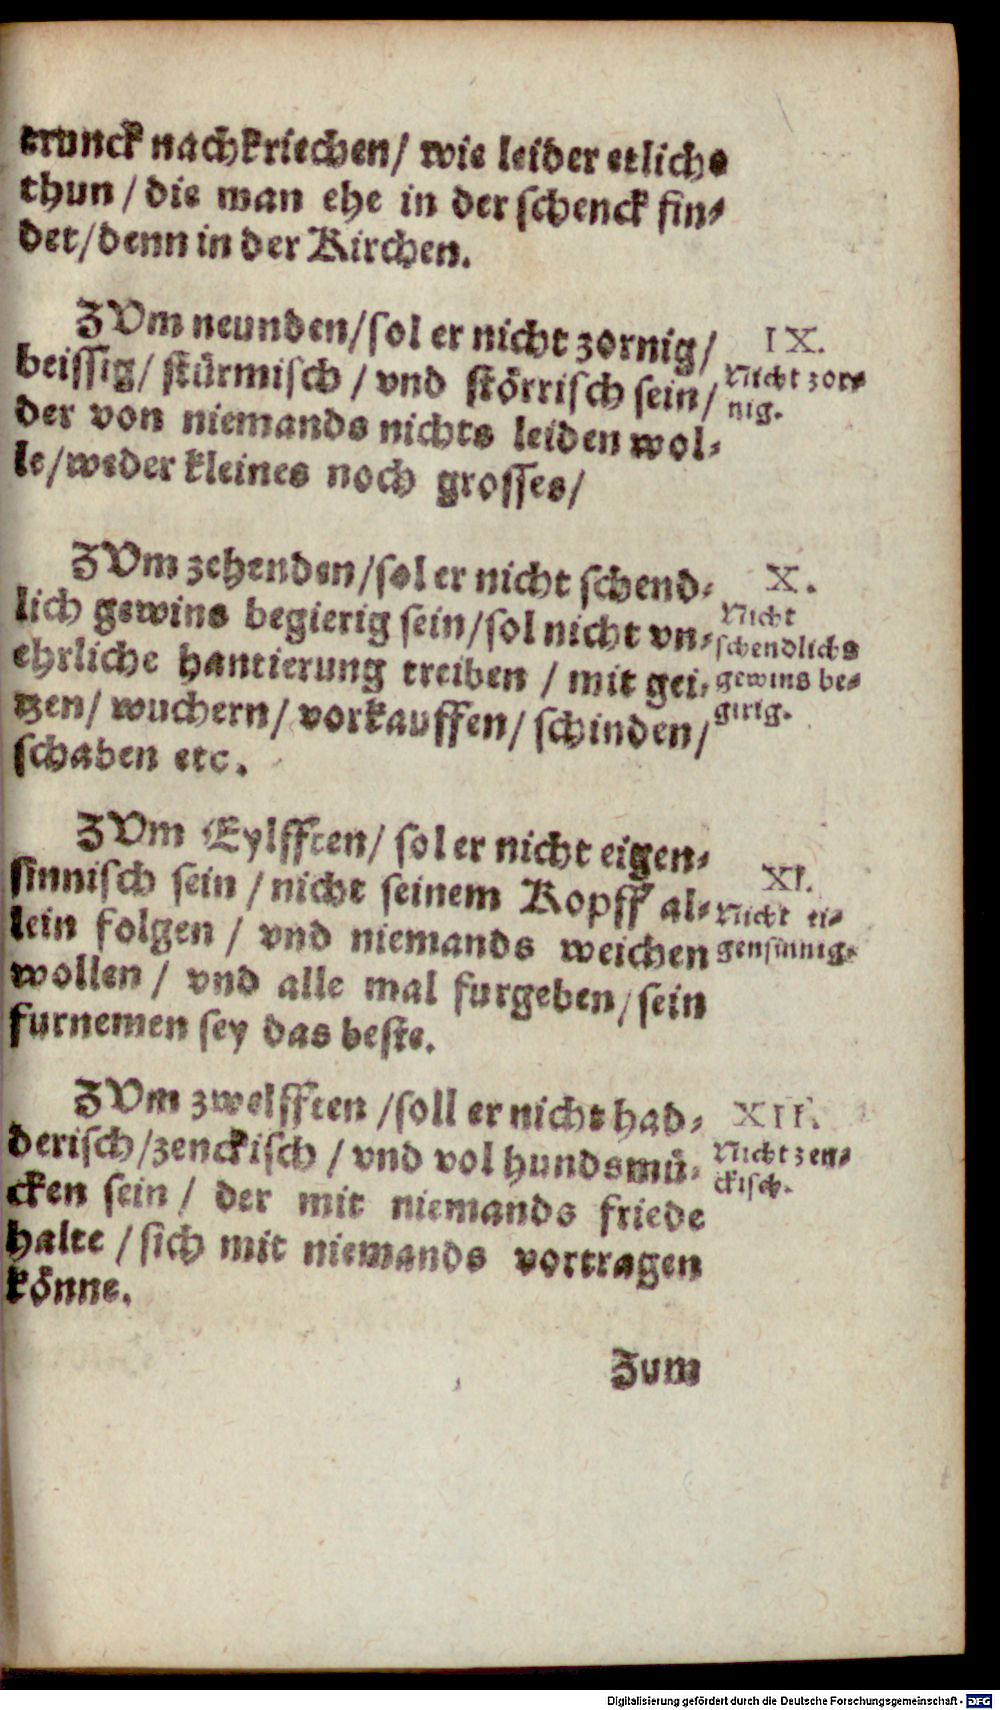 trunck nachkriechen/ wie leider etliche
thun / die man ehe in der schenck fin⸗
det/denn in der Kirchen.
ZVm neunden/sol er nicht zornig/
beissig/ stürmisch / vnd störrisch sein/
der von niemands nichts leiden wol⸗
le/weder kleines noch grosses/
IX.
Nicht zor⸗
nig.
ZVm zehenden/sol er nicht schend⸗
lich gewins begierig sein/sol nicht vn⸗
ehrliche hantierung treiben / mit gei⸗
tzen/ wuchern/ vorkauffen/ schinden/
schaben etc.
X.
Nicht
schendlichs
gewins be⸗
girig.
ZVm Eylfften/ sol er nicht eigen⸗
sinnisch sein / nicht seinem Kopff al⸗
lein folgen / vnd niemands weichen
wollen / vnd alle mal furgeben/sein
furnemen sey das beste.
XI.
Nicht ei⸗
gensinnig.
ZVm zwelfften /soll er nicht had⸗
derisch/zenckisch / vnd vol hundsmü⸗
cken sein / der mit niemands friede
halte /sich mit niemands vortragen
könne.
XII.
Nicht zen⸗
ckisch.
Zum
Digitalisierung gefördert durch die Deutsche Forschungsgemeinschaft - DFG